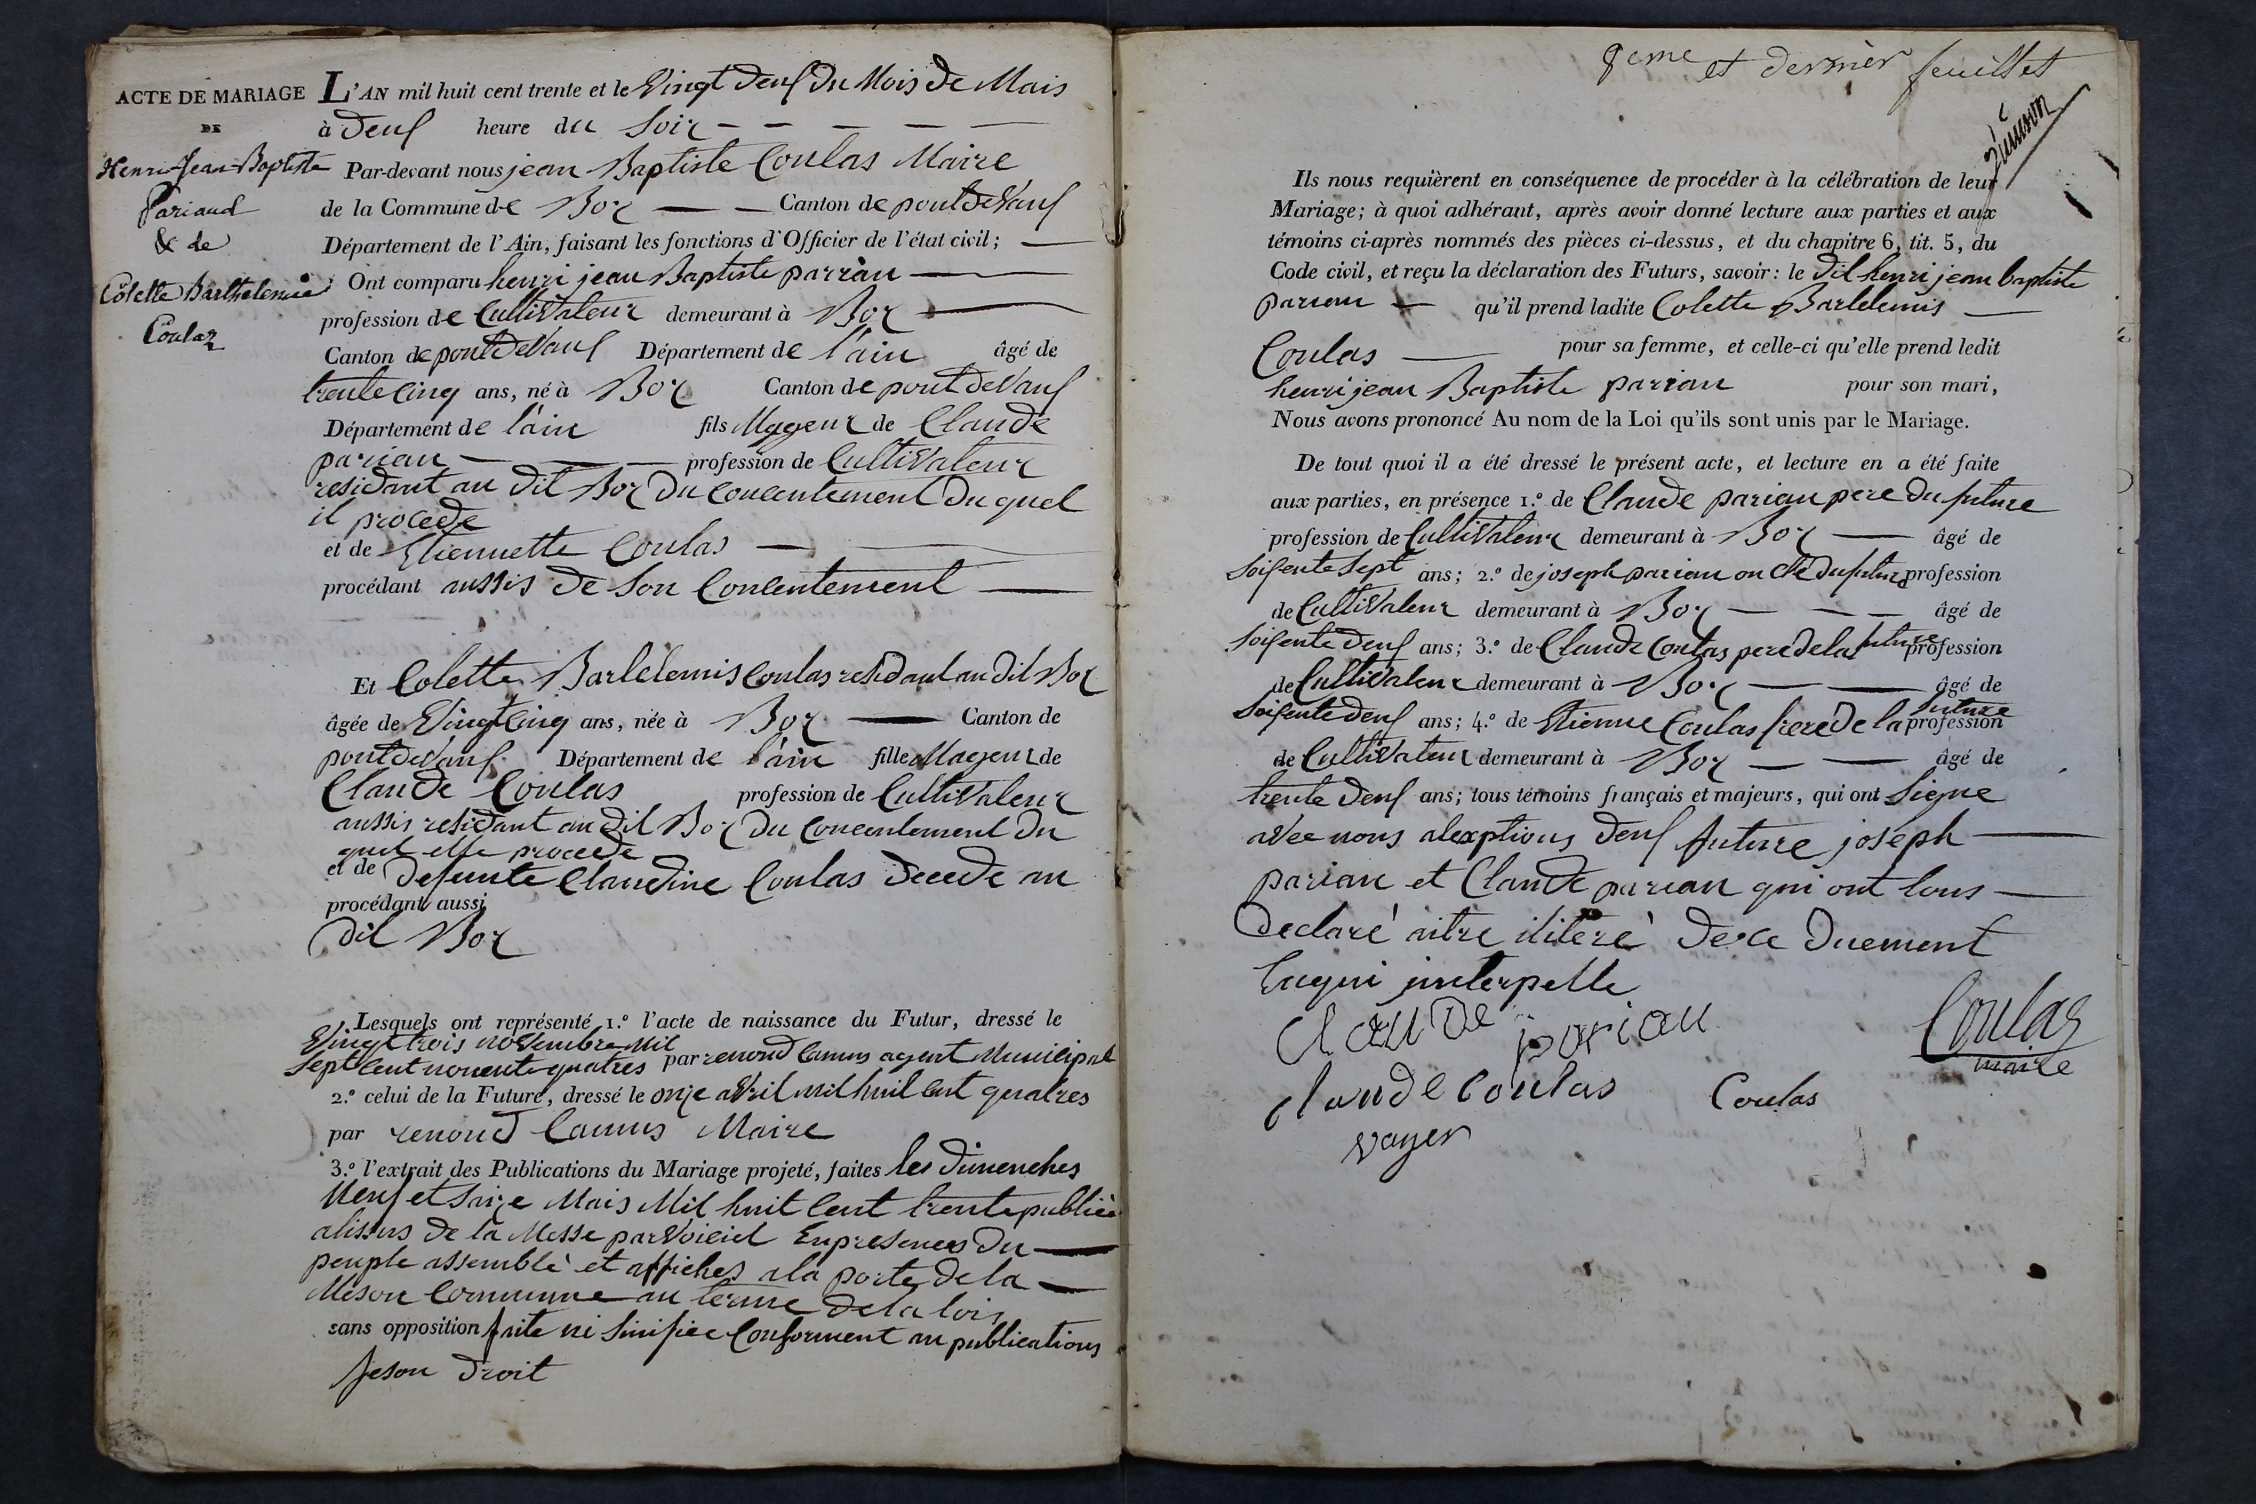 ACTE DE MARIAGE
DE
Henri Jean-Baptiste
Pariaud
& de
Colette Barthelemie
Coulaz
L'AN mil huit cent trente et le Vingt deux du Mois de Mais
à deux heure du Soir
Par-devant nous jean Baptiste Coulas Maire
de la Commune de Boz Canton de pontDeVaux
Département de l'Ain, faisant les fonctions d'Officier de l'état civil;
Ont comparu henri jean Baptiste parriau
profession de CultiVateur demeurant à Boz
Canton de pontDeVaux Département de l'ain âgé de
trente cinq ans, né à Boz Canton de pont deVaux
Département de l'ain fils Mageur de Claude
pariau profession de CultiVateur
residant au dit Boz du concentement du quel
il procede
et de Etiennette Coulas
procédant aussis de son Concentement
Et Colette Bartelemis Coulas residant au dit Boz
âgée de Vingt Cinq ans, née à Boz Canton de
pontDeVaux Département de l'ain fille Mageur de
Claude Coulas profession de CultiVateur
aussis residant au dit Boz du concentement du
quel elle procede
et de defunte Claudine Coulas decede au
procédant aussi
dit Boz
Lesquels ont représenté 1.º l'acte de naissance du Futur, dressé le
Vingt trois noVembre Mil
sept Cent nonente quatres par renond Camus agent Municipal
2.º celui de la Future, dressé le onze aVril mil huit cent quatres
par renond Camus Maire
3.º l'extrait des Publications du Mariage projeté, faites les dimenches
Neuf et saize Mais Mil huit Cent trente publiée
alissus de la Messe par Enpresences du
peuple assemblé et affiches ala porte de la
Meson Commune au terme de la lois
sans opposition faite ni sinifiee Conforment au publications
feson droit
et dernier feuillet
Ils nous requièrent en conséquence de procéder à la célébration de leur
Mariage; à quoi adhérant, après avoir donné lecture aux parties et aux
témoins ci-après nommés des pièces ci-dessus, et du chapitre 6, tit. 5, du
Code civil, et reçu la déclaration des Futurs, savoir: le dit henri jean baptiste
pariau qu'il prend ladite Colette Bartelemis
Coulas pour sa femme, et celle-ci qu'elle prend ledit
henri jean Baptiste pariau pour son mari,
Nous avons prononcé Au nom de la Loi qu'ils sont unis par le Mariage.
De tout quoi il a été dressé le présent acte, et lecture en a été faite
aux parties, en présence 1.º de Claude pariau pere du future
profession de CultiVateur demeurant à Boz âgé de
soixente sept ans; 2.º de joseph pariau oncle du future profession
de CultiVateur demeurant à Boz âgé de
soixente deux ans; 3.º de Claude Coulas pere de la future profession
de CultiVateur demeurant à Boz âgé de
soixente deux ans; 4.º de Etienne Coulas frere de la future profession
de CultiVateur demeurant à Boz âgé de
trente deux ans; tous témoins français et majeurs, qui ont signe
aVec nous alexptions deux future joseph
pariau et Claude pariau qui ont tous
declaré aitre ilitere de ce duement
Enqui interpelle
Claude pariau
Coulas
maire
claude coulas
Coulas
vayer